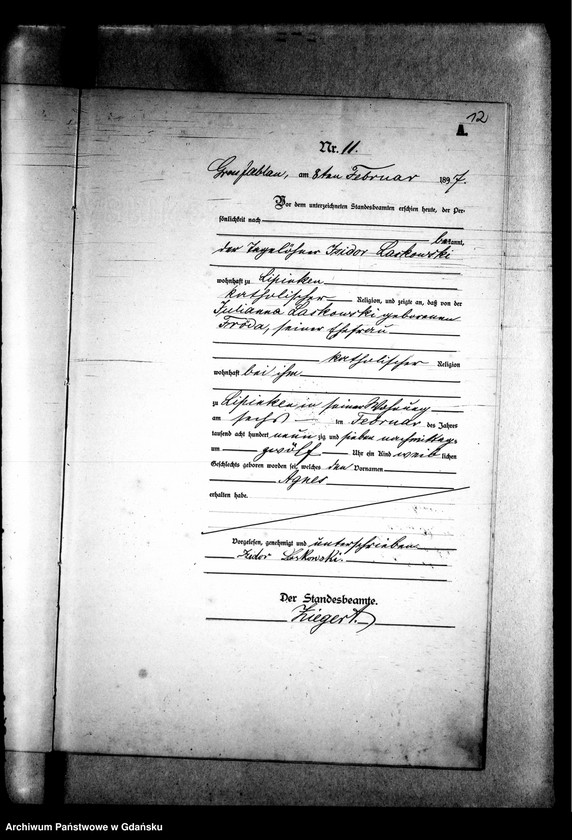 12
A.
Nr. 11.
Groß Jablau, am 8ten Februar 1897.
Vor dem unterzeichneten Standesbeamten erschien heute, der Per-
sönlichkeit nach
bekannt,
der Tagelöhner Isidor Laskowski
wohnhaft zu Lipinken
katholischer Religion, und zeigte an, daß von der
Julianna Laskowski geborenen
Froda, seiner Ehefrau
katholischer Religion
wohnhaft bei ihm
zu Lipinken in seiner Wohnung
am sechsten Februar des Jahres
tausend acht hundert neunzig und sieben nachmittags
um zwölf Uhr ein Kind weiblichen
Geschlechts geboren worden sei, welches den Vornamen
Agnes
erhalten habe.
Vorgelesen, genehmigt und unterschrieben
Isidor Laskowski.
Der Standesbeamte.
Ziegert
Archiwum Państwowe w Gdańsku